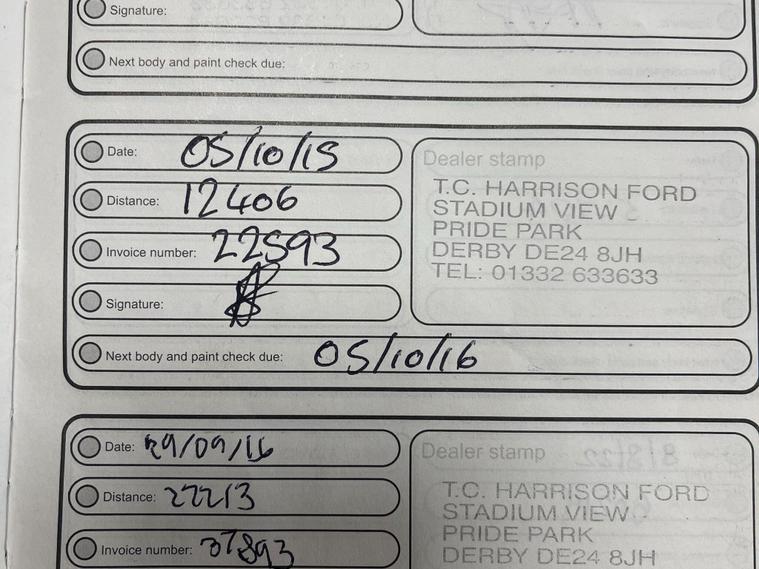 Signature:
Next body and paint check due:
Date: 05/10/15
Distance: 12406
Invoice number: 22593
Signature:
Next body and paint check due: 05/10/16
Dealer stamp
T.C. HARRISON FORD
STADIUM VIEW
PRIDE PARK
DERBY DE24 8JH
TEL: 01332 633633
Date: 29/09/16
Distance: 22213
Invoice number: 37893
Dealer stamp
T.C. HARRISON FORD
STADIUM VIEW
PRIDE PARK
DERBY DE24 8JH